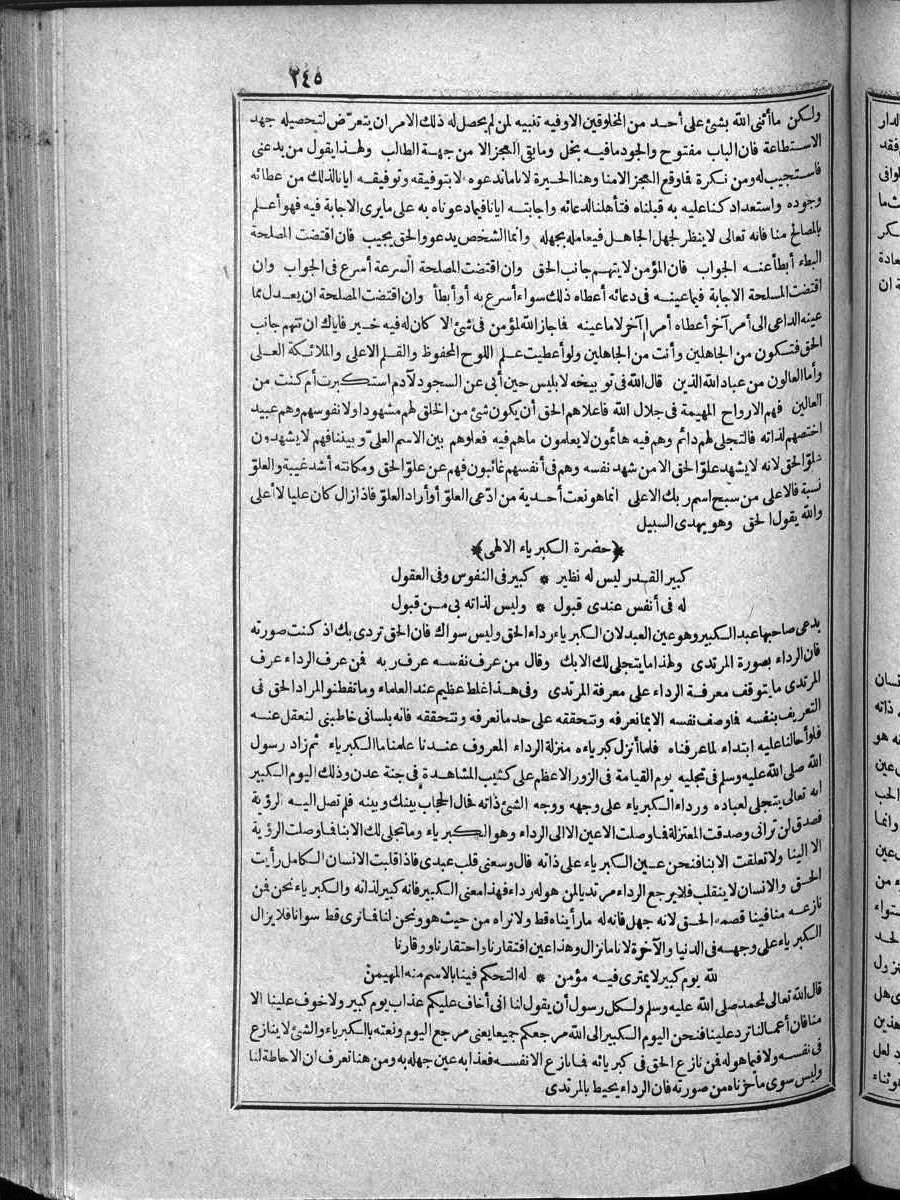 ٢٤٥
ولكن ما أثنى الله بشئ على أحد من المخلوقين الا وفيه تنبيه لمن لم يحصل له ذلك الامر ان يتعرّض لتحصيله جهد
الاستطاعة فان الباب مفتوح والجود ما فيه بخل وما بقى العجز الا من جهة الطالب ولهذا يقول من يدعنى
فاستجيب له ومن نكرة فما وقع العجز الا منا وهنا الحيرة لانا ما ندعوه الا بتوفيقه وتوفيقه ايانا لذلك من عطائه
وجوده واستعداد كنا عليه به قبلناه فتأهلنا لدعائه واجابته ايانا فيما دعوناه به على ما يرى الاجابة فيه فهو أعلم
بالمصالح منا فانه تعالى لا ينظر لجهل الجاهل فيعامله بجهله وانما الشخص يدعو والحق يجيب فان اقتضت المصلحة
البطء أبطأ عنه الجواب فان المؤمن لا يتهم جانب الحق وان اقتضت المصلحة السرعة أسرع فى الجواب وان
اقتضت المصلحة الاجابة فيما عينه فى دعائه أعطاه ذلك سواء أسرع به أو أبطأ وان اقتضت المصلحة ان يعدل مما
عينه الداعى الى أمر آخر أعطاه أمرا آخر لا ما عينه فما جاز الله لمؤمن فى شئ الا كان له فيه خير فاياك ان تتهم جانب
الحق فتكون من الجاهلين وأنت من الجاهلين ولو أعطيت علم اللوح المحفوظ والقلم الاعلى والملائكة العلى
وأما العالون من عباد الله الذين قال الله فى توبيخه لابليس حين أبى عن السجود لآدم استكبرت أم كنت من
العالين فهم الارواح المهيمة فى جلال الله فاعلاهم الحق أن يكون شئ من الخلق لهم مشهودا ولا نفوسهم وهم عبيد
اختصهم لذاته فالتجلى لهم دائم وهم فيه هائمون لا يعلمون ما هم فيه فعلوهم بين الاسم العلىّ وبيننا فهم لا يشهدون
علوّ الحق لانه لا يشهد علوّ الحق الا من شهد نفسه وهم فى أنفسهم غائبون فهم عن علوّ الحق ومكانته أشد غيبة والعلوّ
نسبة فالاعلى من سبح اسم ربك الاعلى انما هو نعت أحدية من ادّعى العلوّ أو أراد العلوّ فاذا زال كان عليا لا أعلى
والله يقول الحق وهو يهدى السبيل
﴿حضرة الكبرياء الالهى﴾
كبير القدر ليس له نظير * كبير فى النفوس وفى العقول
له فى أنفس عندى قبول * وليس لذاته بى من قبول
يدعى صاحبها عبد الكبير وهو عين العبد لان الكبرياء رداء الحق وليس سواك فان الحق تردى بك اذ كنت صورته
فان الرداء بصورة المرتدى ولهذا ما يتجلى لك الا بك وقال من عرف نفسه عرف ربه فمن عرف الرداء عرف
المرتدى ما يتوقف معرفة الرداء على معرفة المرتدى وفى هذا غلط عظيم عند العلماء وما تفطنو المراد الحق فى
التعريف بنفسه فما وصف نفسه الا بما نعرفه ونتحققه على حد ما نعرفه ونتحققه فانه بلسانى خاطبنى لنعقل عنه
فلو أحالنا عليه ابتداء لما عرفناه فلما أنزل كبرياءه منزلة الرداء المعروف عندنا علمنا ما الكبرياء ثم زاد رسول
الله صلى الله عليه وسلم فى تجليه يوم القيامة فى الزور الاعظم على كثيب المشاهدة فى جنة عدن وذلك اليوم الكبير
انه تعالى يتجلى لعباده ورداء الكبرياء على وجهه ووجه الشئ ذاته فحال الحجاب بينك وبينه فلم تصل اليه الرؤية
فصدق لن ترانى وصدقت المعتزلة فما وصلت الاعين الا الى الرداء وهو الكبرياء وما تجلى لك الا بنا فما وصلت الرؤية
الا الينا ولا تعلقت الا بنا فنحن عين الكبرياء على ذاته قال وسعنى قلب عبدى فاذا قلبت الانسان الكامل رأيت
الحق والانسان لا ينقلب فلا يرجع الرداء مرتديا لمن هو له رداء فهذا معنى الكبير فانه كبير لذاته والكبرياء نحن فمن
نازعه منا فينا قصمه الحق لانه جهل فانه له ما رأيناه قط ولا نراه من حيث هو ونحن لنا فما نرى قط سوانا فلا يزال
الكبرياء على وجهه فى الدنيا والآخرة لانا ما نزال وهذا عين افتقارنا واحتقارنا ووقارنا
لله يوم كبير لا يمترى فيه مؤمن * له التحكم فينا بالاسم منه المهيمن
قال الله تعالى لمحمد صلى الله عليه وسلم ولكل رسول أن يقول لنا انى أخاف عليكم عذاب يوم كبير ولا خوف علينا الا
منا فان أعمالنا ترد علينا فنحن اليوم الكبير الى الله مرجعكم جميعا يعنى مرجع اليوم ونعته بالكبرياء والشئ لا ينازع
فى نفسه ولا فيما هو له فمن نازع الحق فى كبريائه فما نازع الا نفسه فعذابه عين جهله به ومن هنا تعرف ان الاحاطة لنا
وليس سوى ما حزناه من صورته فان الرداء يحيط بالمرتدى